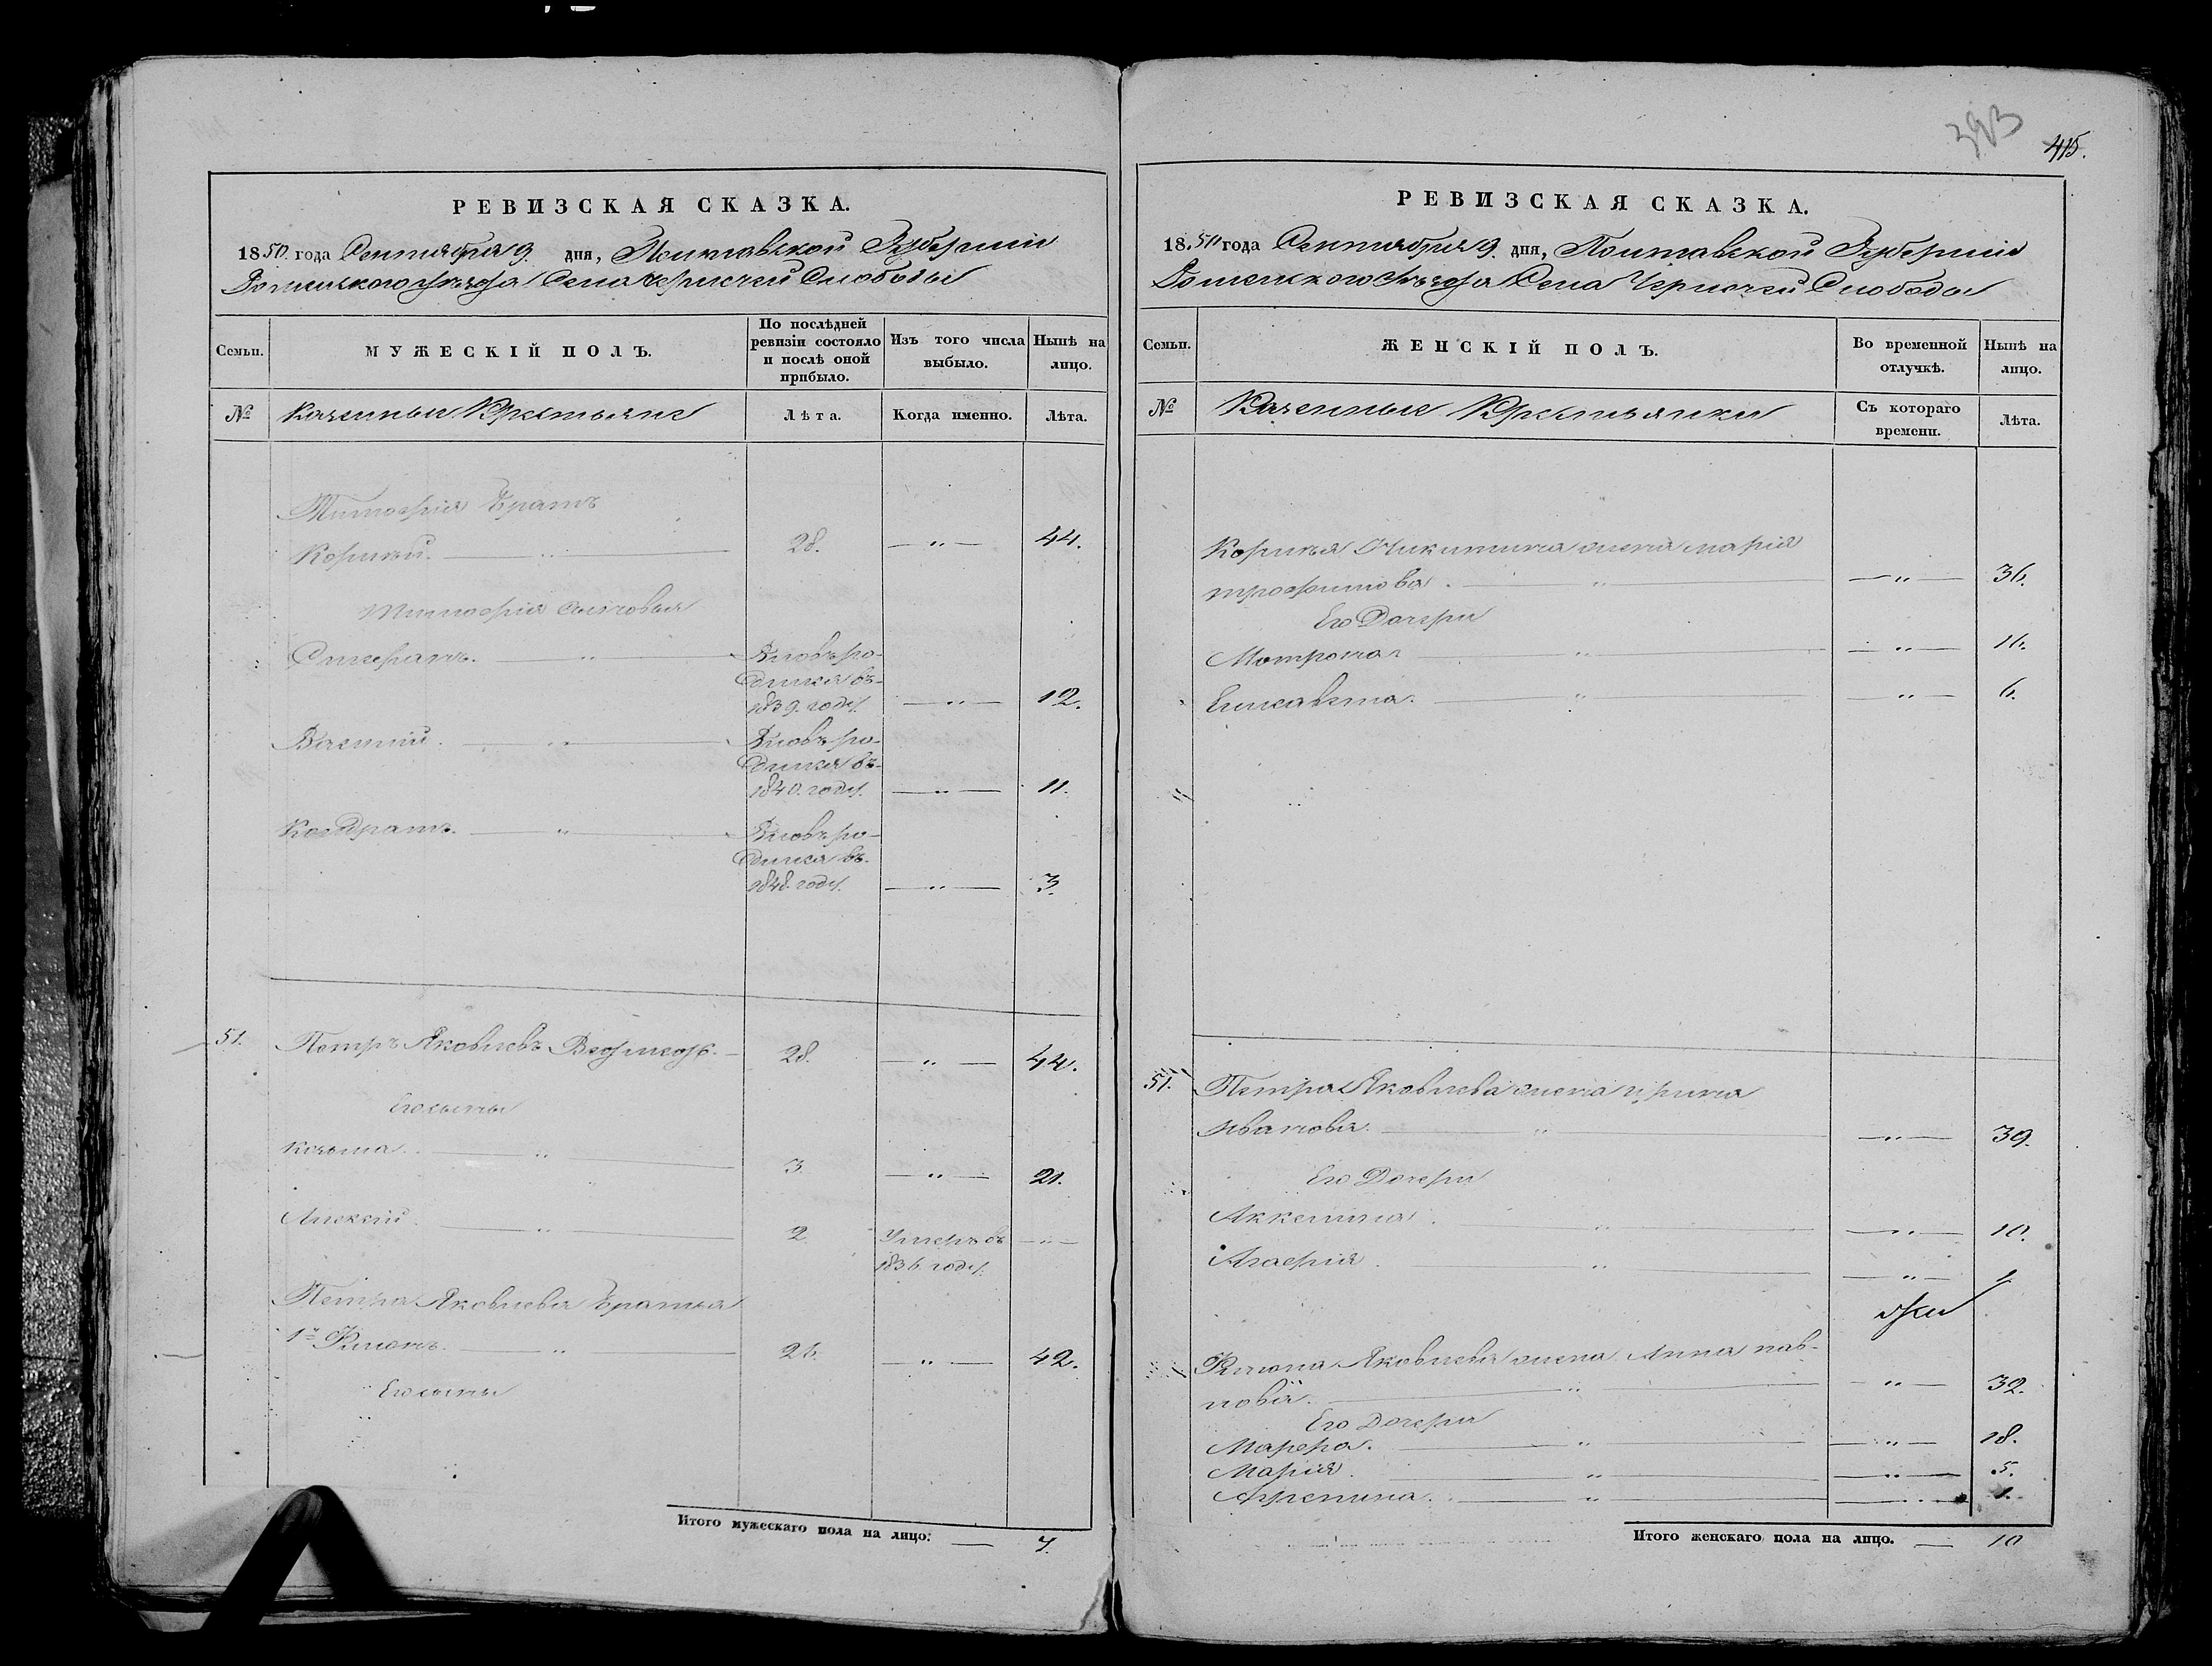 393
415.
РЕВИЗСКАЯ СКАЗКА.
1850 года Сентября 9. дня, Полтавской Губернии
Роменского уѣзда Села Чернечей Слободы
Семьи.
МУЖЕСКІЙ ПОЛЪ.
По послѣдней ревизіи состояло и послѣ оной прибыло.
Изъ того числа выбыло.
Нынѣ на лицо.
№
Казенные Крестьяне
Лѣта.
Когда именно.
Лѣта.
Тимофія братъ
Корнѣй. 28. 44.
Тимофія сыновья
Вновь ро-
дился въ
1839. году. 12.
Василій. Вновь ро-
дился въ
1840. году. 11.
Кондратъ. Вновь ро-
дился въ
1848. году. 3.
51. Петръ Яковлевъ 28. 44.
Его сыны
Козьма. 3. 21.
Алексій. 2. Умеръ въ
1836. году.
Петра Яковлева братья
1й Филонъ. 26. 42.
Его сыны
Итого мужескаго пола на лицо. 7.
РЕВИЗСКАЯ СКАЗКА.
1850 года Сентября 9. дня, Полтавской Губерніи
Роменского уѣзда Села Чернечей Слободы
Семьи.
ЖЕНСКІЙ ПОЛЪ.
Во временной отлучкѣ.
Нынѣ на лицо.
№
Казенные Крестьянки
Съ котораго времени.
Лѣта.
Корнѣя Никитина жена Марія
Трофимова. 36.
Его Дочери
Мотрона 16.
Елисавета. 6.
51. Петра Яковлева жена Ирина
Иванова. 39.
Его Дочери
Аксенія. 10.
Агафія. 1
Филона Яковлева жена Анна Пав-
лова. 32.
Его Дочери
Марфа. 18.
Марія. 5.
Агрепина. 1.
Итого женскаго пола на лицо. 10